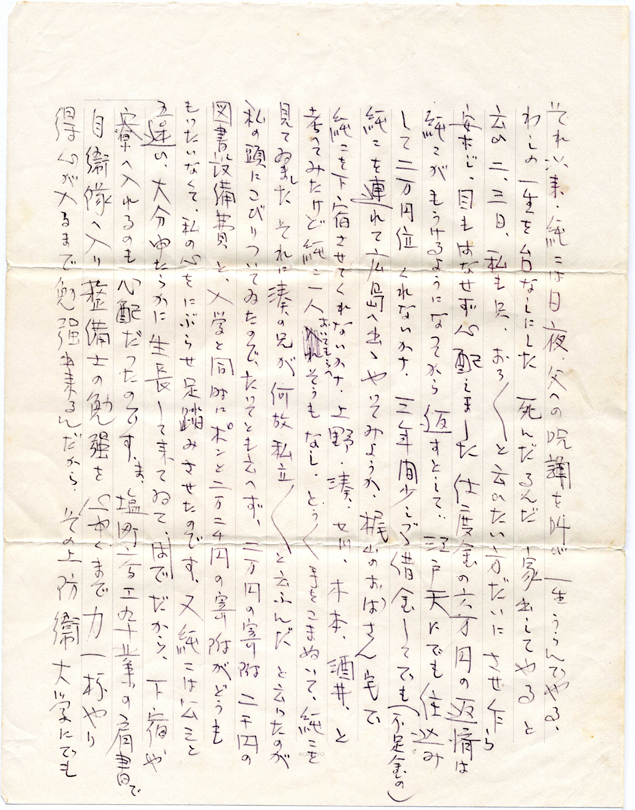 それ以来、純二は日夜、父への呪詛を叫び一生うらんでやる、
わしの一生を台なしにした 死んだるんだ 家出してやると
云ひ二、三日、私も只、おろ〱と云いたい方だいにさせ乍ら
案じ、目もはなせず心配しました 仕度金の六万円の返済は
純二がもうけるようになってから返すとして、江戸天にでも住込み
して二万円位くれないかナ、三年間少しづゝ借金してでも(不足金の)
純二を連れて広島へ出ゝやってみようか、梶山のおばさん宅で
純二を下宿させてくれないかナ、上野、湊、廿川、木本、酒井、と
考へてみたけど純二一人おいてもらへそうもなし、とう〱手をこまぬいて、純二を
見てゐました それに湊の兄が何故私立〱と云ふんだ と云ったのが
私の頭にこびりついてゐたので、たいてとも云へず、二万円の寄附 二千円の
図書設備費と、入学と同時にポンと二万二千円の寄附がどうも
もったいなくて、私の心をにぶらせ足踏みさせたのです、又純二は公二と
違い、大分中たらかに生長して来てゐて、 でだから、下宿や
寮へ入れるのも心配だったのです、ま、塩町 工卒業の肩書で
自衛隊へ入り整備士の勉強を心ゆくまで力一杯やり
得心が入るまで勉強出来るんだから、その上防衛大学にでも